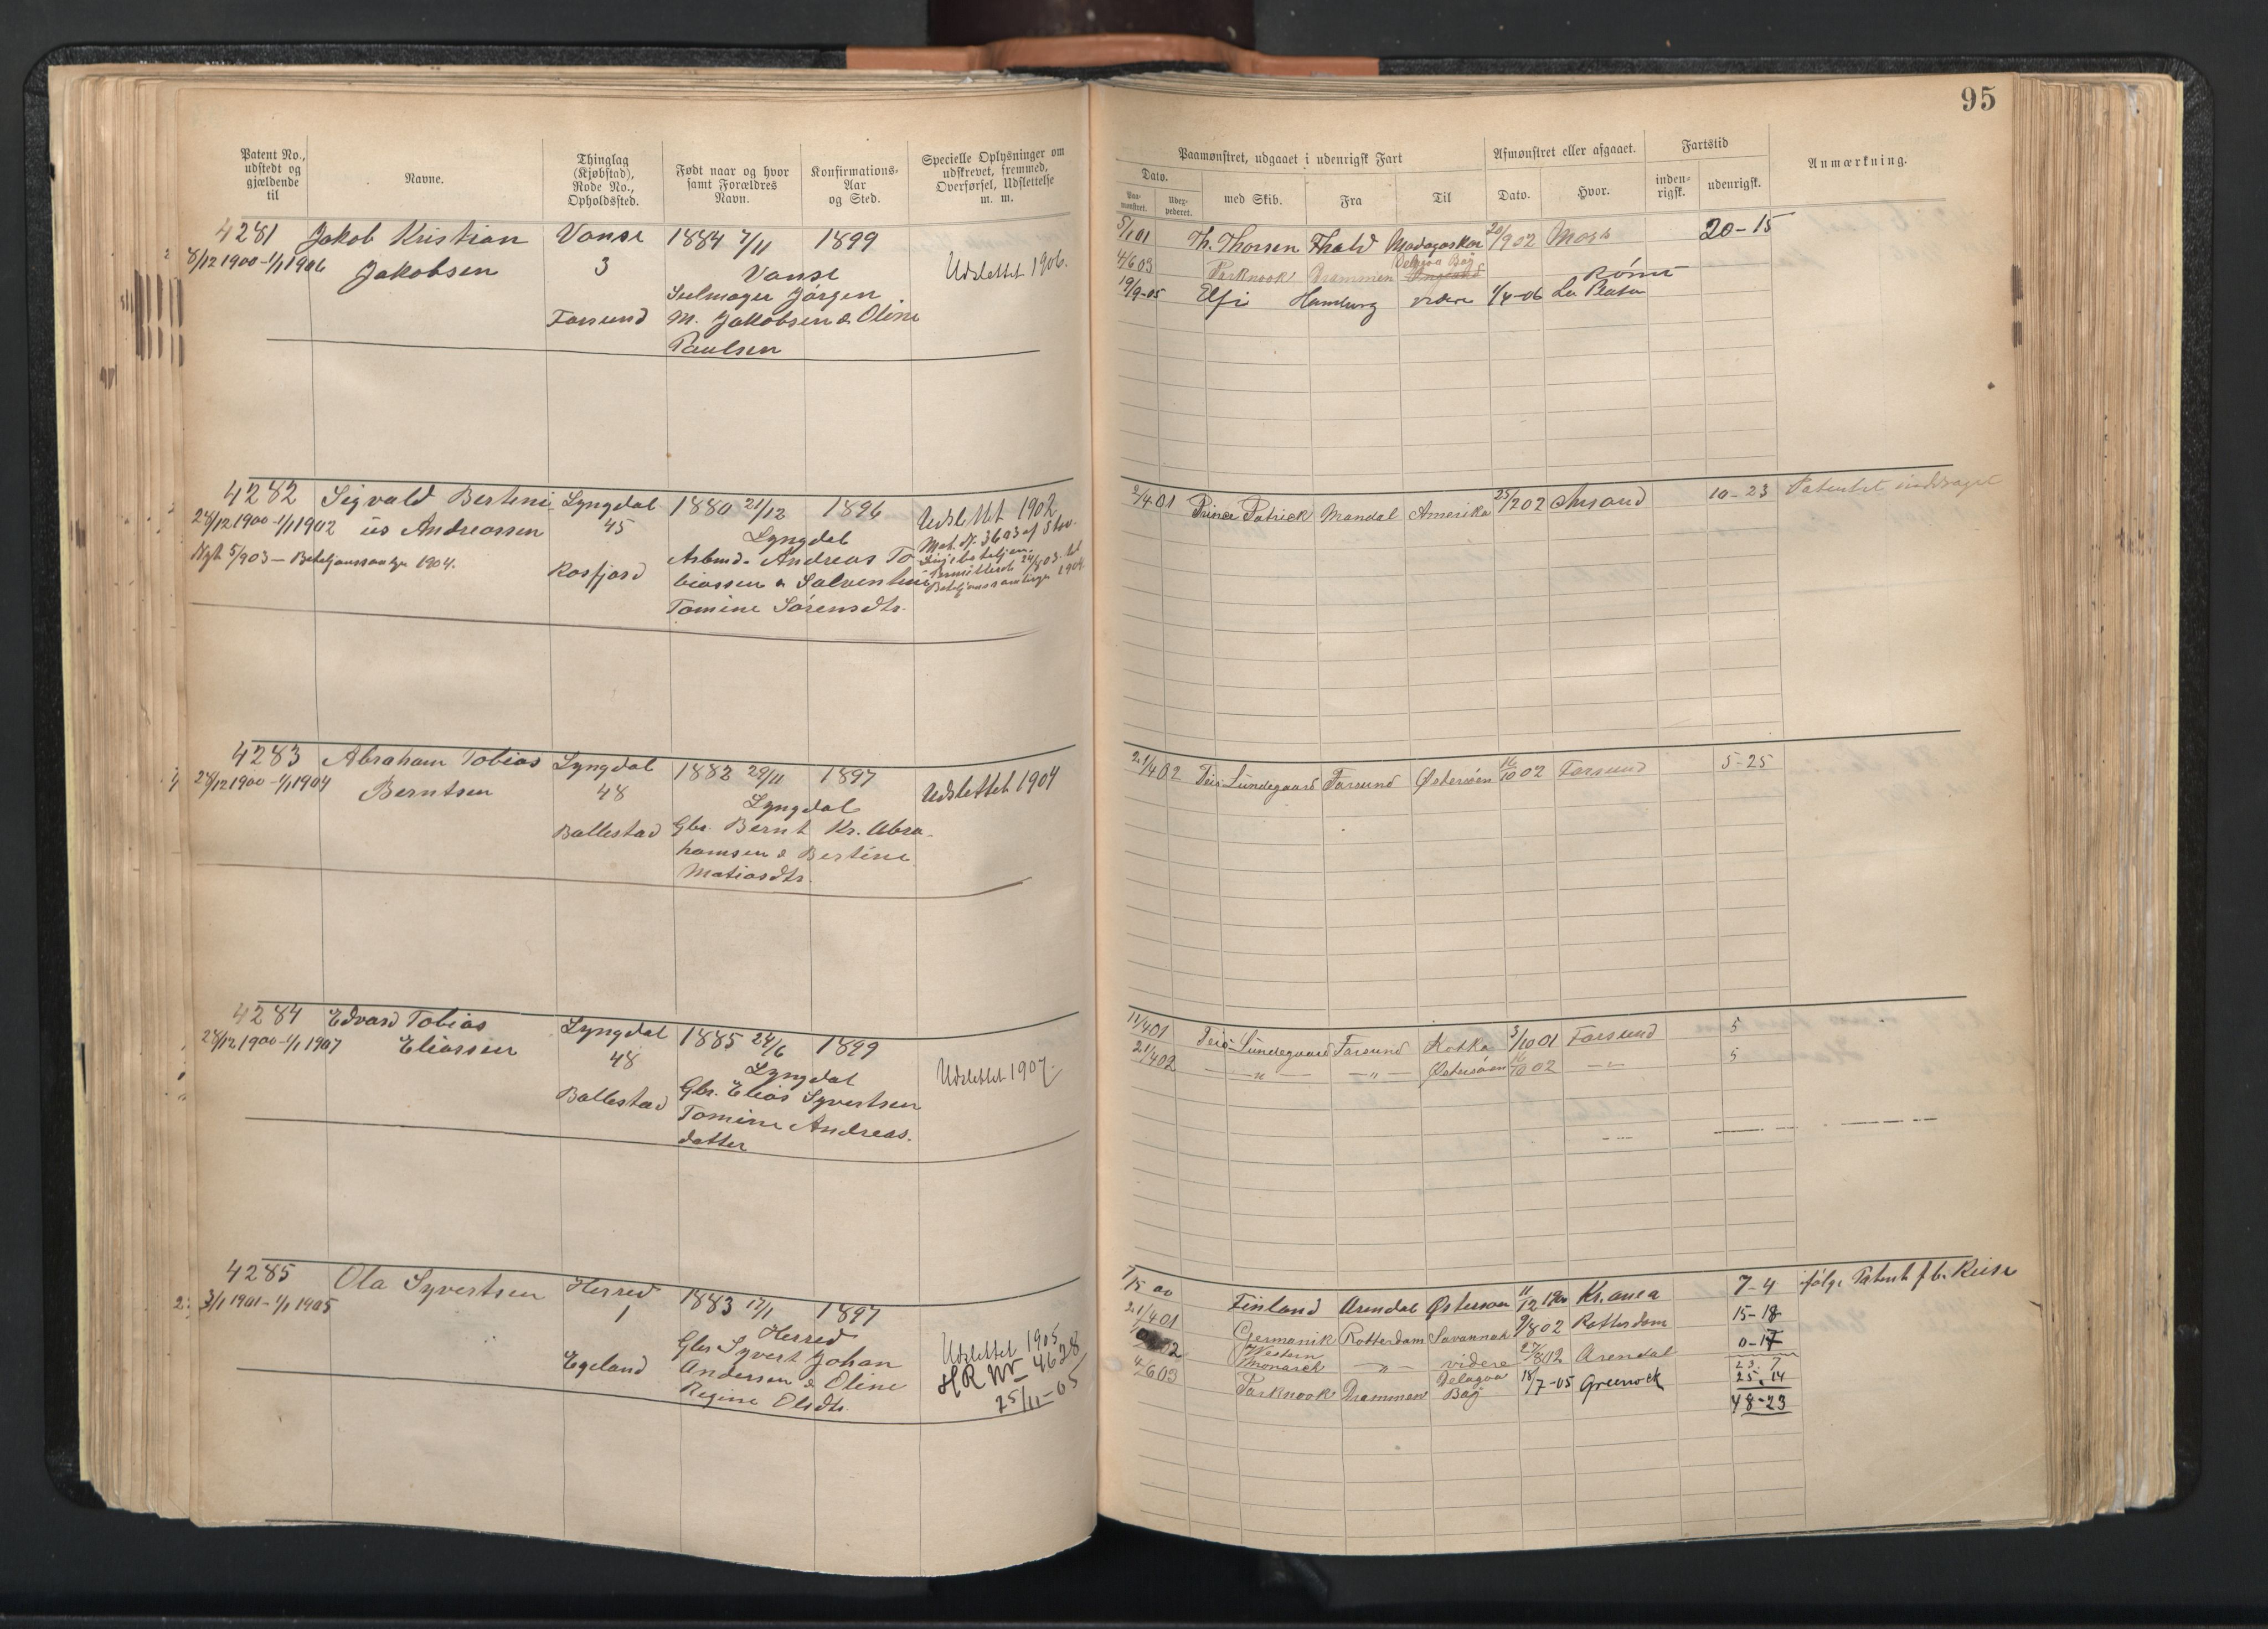 95
Patent No., udstedt og gjældende til
Navne.
Thinglag (Kjøbstad), Rode No., Opholdssted.
Født naar og hvor samt Forældres Navn.
Konfirmations-Aar og Sted.
Specielle Oplysninger om udskrevet, fremmed, Overførsel, Udslettelse m. m.
Paamønstret, udgaaet i udenrigsk Fart
Afmønstret eller afgaaet.
Fartstid
Anmærkning.
Dato.
Paa-mønstret.
Udex-pederet.
med Skib.
Fra
Til
Dato.
Hvor.
inden-rigsk.
udenrigsk.
4281 Jakob Kristian Vanse 1884 7/11 1899
8/12 1900-1/1 1906 Jakobsen 3 Vanse Udslettet 1906.
Seelmager Jørgen
Farsund M. Jakobsen & Oline
Paulsen
5/1 01 Th. Thorsen Madagaskar 20/9 02 20-15
4/6 03 Parknook Drammen Delagoa Bay
19/9-05 Elfi Hamburg videre 1/4-06 La Plata
4282 Sigvald Bertini Lyngdal 1880 21/12 1896 Udslettet 1902
28/12 1900-1/1 1902 us Andreassen 45 Lyngdal Mat. N. 3603 af Stav.
5/9 03 - 1904. Rosfjord Arbmd. Andreas To
biassen &
Tomine Sørensdtr.
2/4 01 Prince Patrick Mandal Amerika 25/2 02 10-23 Patentet inddraget
4283 Abraham Tobias Lyngdal 1882 29/11 1897 Udslettet 1904
28/12 1900-1/1 1904 Berntsen 48 Lyngdal
Ballestad Gbr. Bernt Kr. Abra-
hamsen & Bertine
Matiasdtr.
21/4 02 Lundegaard Farsund Østersøen 16/10 02 Farsund 5-25
4284 Edvard Tobias Lyngdal 1885 24/6 1899
28/12 1900-1/1 1907 Eliassen 48 Lyngdal Udslettet 1907.
Ballestad Gbr. Elias Syvertsen
Tomine Andreas.
datter
11/4 01 Lundegaard Farsund Kotka 3/10 01 Farsund 5
21/4 02 — " — — " — Østersøen 16/10 02 — " — 5
4285 Ola Syvertsen Herred 1883 17/1 1897
3/1 1901-1/1 1905 1 Herred Udslettet 1905
Gbr Syvert Johan HR Nr 4628
Egeland Andersen & Oline 25/11-05
Regine Olsdtr.
1/5 00 Finland Arendal Østersøen 11/12 1900 Kr.ania 7-4 ifølge Patent f. b. Reise
21/4 01 Germanik Rotterdam Savannah 9/8 02 Rotterdam 15-18
02 Western Monarch — " — videre 27/8 02 Arendal 0-17
23. 7
4/6 03 Parknook Drammen Delagoa Bay 18/7-05 Greenock 25. 14
48-23